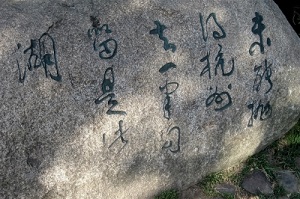 未能抛
得杭州
去一半勾
留是此
湖